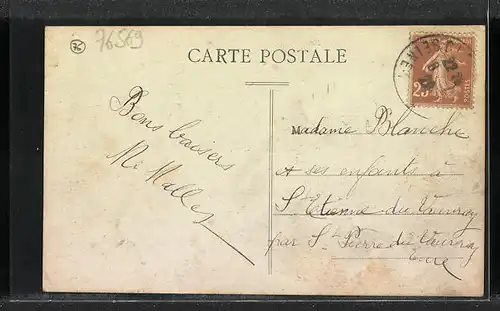 76
76569
CARTE POSTALE
SEINE
25
POSTES
Bons baisers
Madame Blanche
et ses enfants à
St Etienne du Vauvray
par St Pierre du Vauvray
Eure